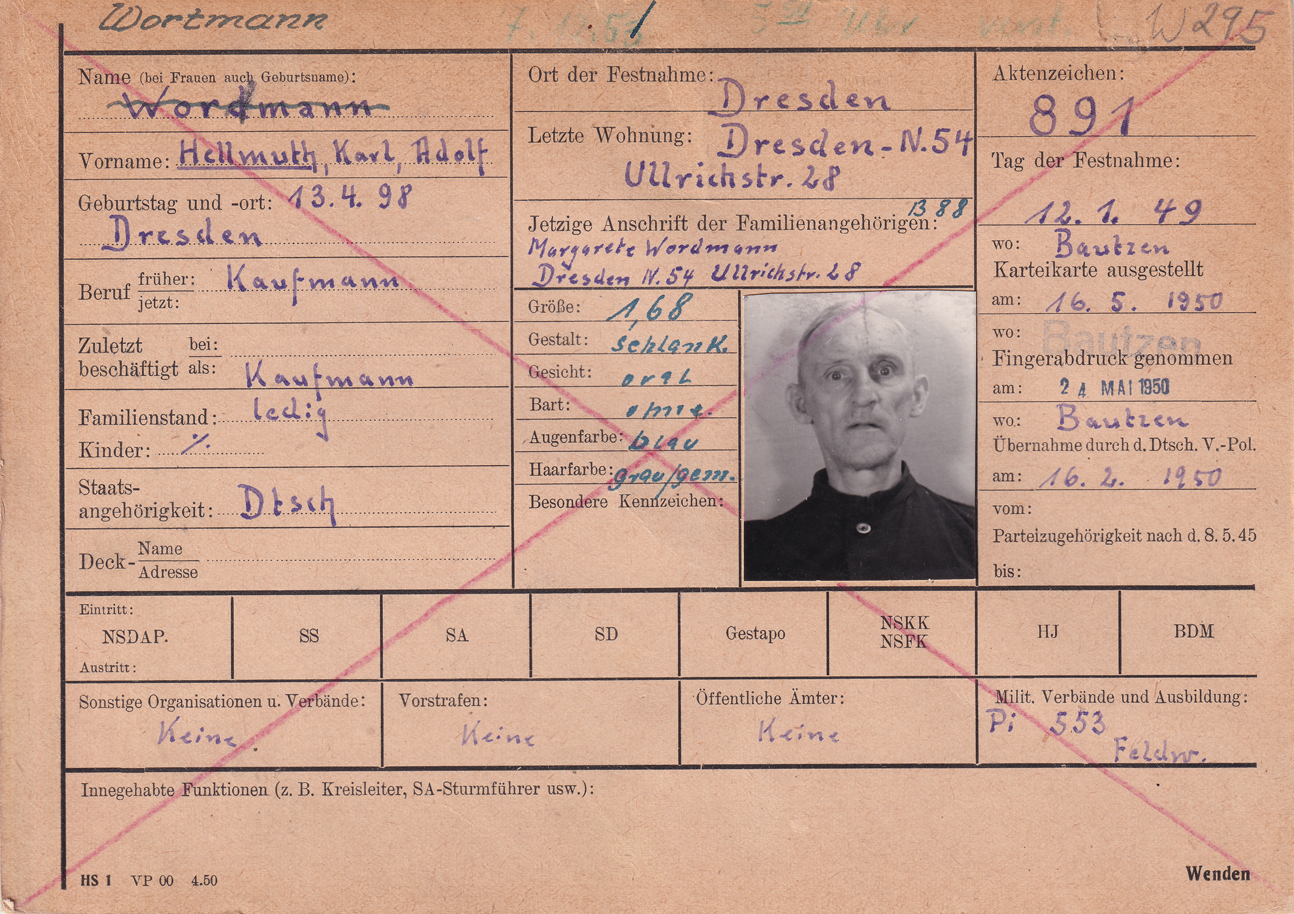 Wortmann
W 295
Name (bei Frauen auch Geburtsname):
Wordmann
Vorname: Hellmuth, Karl, Adolf
Geburtstag und -ort: 13.4.98
Dresden
Beruf früher: Kaufmann
jetzt:
Zuletzt beschäftigt bei:
als: Kaufmann
Familienstand: ledig
Kinder: ./.
Staats-
angehörigkeit: Dtsch
Deck- Name
Adresse
Ort der Festnahme:
Dresden
Letzte Wohnung: Dresden-N.54
Ullrichstr. 28
B 88
Jetzige Anschrift der Familienangehörigen:
Margarete Wordmann
Dresden N.54 Ullrichstr. 28
Größe: 1,68
Gestalt: schlank.
Gesicht: oval
Bart: ohne.
Augenfarbe: blau
Haarfarbe: grau/gem.
Besondere Kennzeichen:
Aktenzeichen:
891
Tag der Festnahme:
12.1. 49
wo: Bautzen
Karteikarte ausgestellt
am: 16.5. 1950
wo: Bautzen
Fingerabdruck genommen
am: 24 MAI 1950
wo: Bautzen
Übernahme durch d. Dtsch. V.-Pol.
am: 16.2. 1950
vom:
Parteizugehörigkeit nach d. 8.5.45
bis:
Eintritt:
NSDAP.
Austritt:
SS
SA
SD
Gestapo
NSKK
NSFK
HJ
BDM
Sonstige Organisationen u. Verbände:
Keine
Vorstrafen:
Keine
Öffentliche Ämter:
Keine
Milit. Verbände und Ausbildung:
Pi 553
Feldw.
Innegehabte Funktionen (z. B. Kreisleiter, SA-Sturmführer usw.):
HS 1 VP 00 4.50
Wenden